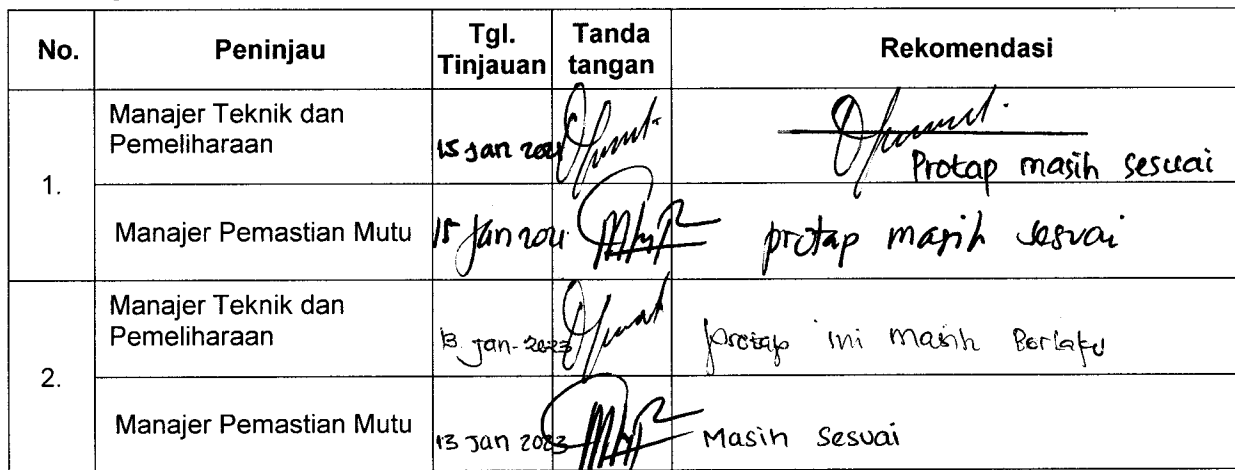 No. Peninjau Tgl. Tinjauan Tanda tangan Rekomendasi
1.
Manajer Teknik dan
Pemeliharaan
15 Jan 2021
Protap masih sesuai
Manajer Pemastian Mutu 15 Jan 2021 protap masih sesuai
2.
Manajer Teknik dan
Pemeliharaan
13 Jan-2023 protap ini masih Berlaku
Manajer Pemastian Mutu 13 Jan 2023 Masih sesuai